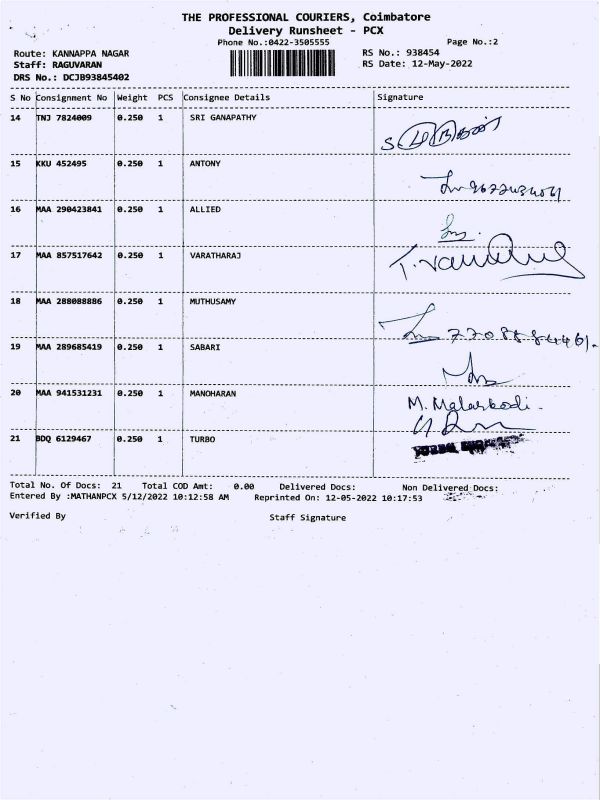 THE PROFESSIONAL COURIERS, Coimbatore
Delivery Runsheet - PCX
Phone No.:0422-3505555
Page No.:2
Route: KANNAPPA NAGAR
RS No.: 938454
Staff: RAGUVARAN
RS Date: 12-May-2022
DRS No.: DCJB93845402
S No Consignment No Weight PCS Consignee Details Signature
14 TNJ 7824009 0.250 1 SRI GANAPATHY
15 KKU 452495 0.250 1 ANTONY
16 MAA 290423841 0.250 1 ALLIED
17 MAA 857517642 0.250 1 VARATHARAJ
18 MAA 288088886 0.250 1 MUTHUSAMY
19 MAA 289685419 0.250 1 SABARI
20 MAA 941531231 0.250 1 MANOHARAN M. Malarkodi.
21 BDQ 6129467 0.250 1 TURBO
Total No. Of Docs: 21 Total COD Amt: 0.00 Delivered Docs: Non Delivered Docs:
Entered By :MATHANPCX 5/12/2022 10:12:58 AM Reprinted On: 12-05-2022 10:17:53
Verified By Staff Signature